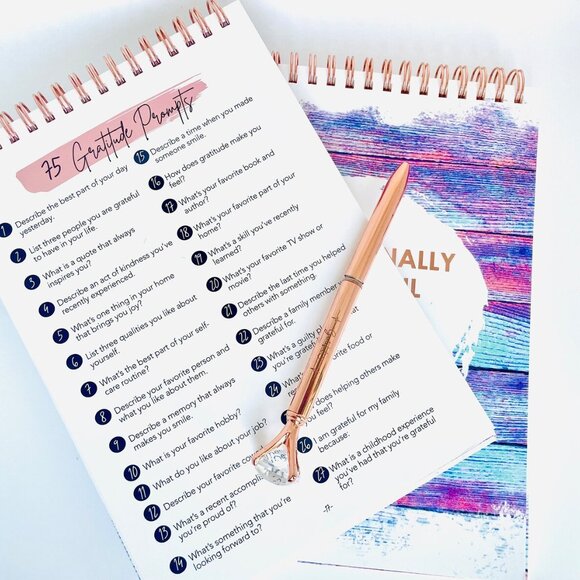 75 Gratitude Prompts
1 Describe the best part of your day
yesterday.
2 List three people you are grateful
to have in your life.
3 What is a quote that always
inspires you?
4 Describe an act of kindness you've
recently experienced.
5 What's one thing in your home
that brings you joy?
6 List three qualities you like about
yourself.
7 What's the best part of your self-
care routine?
8 Describe your favorite person and
what you like about them.
9 Describe a memory that always
makes you smile.
10 What is your favorite hobby?
11 What do you like about your job?
12 Describe your favorite
13 What's a recent
you're proud of?
14 What's something that you're
looking forward to?
15 Describe a time when you made
someone smile.
16 How does gratitude make you
feel?
17 What's your favorite book and
author?
18 What's your favorite part of your
home?
19 What's a skill you've recently
learned?
20 What's your favorite TV show or
movie?
21 Describe the last time you helped
others with something.
22 Describe a family member
grateful for.
23 What's a guilty
you're grateful
24 favorite food or
does helping others make
you feel?
26 I am grateful for my family
because:
27 What is a childhood experience
you've had that you're grateful
for?
-7-